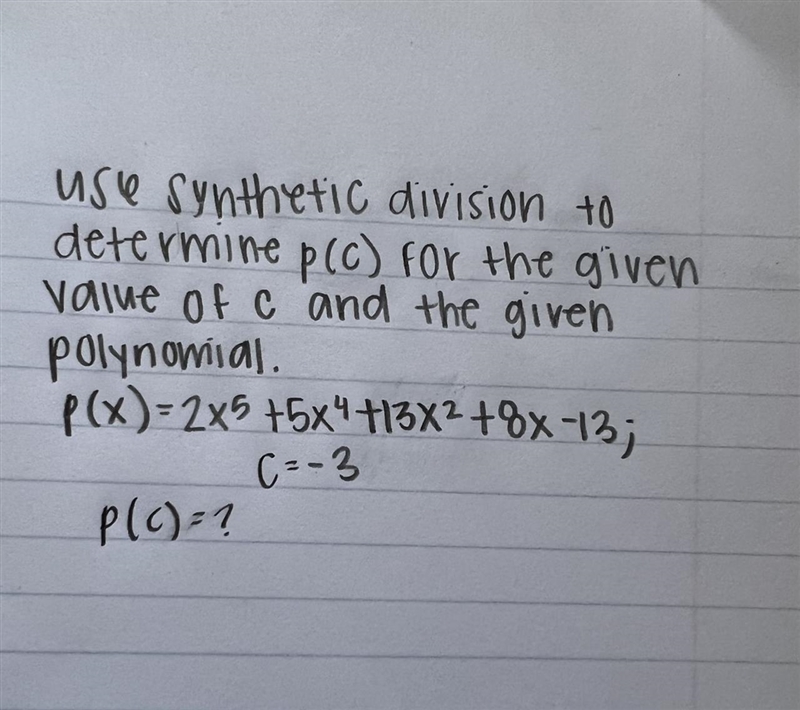 use synthetic division to
determine p(c) for the given
value of c and the given
polynomial.
p(x)=2x⁵+5x⁴+13x²+8x-13;
c=-3
p(c)=?